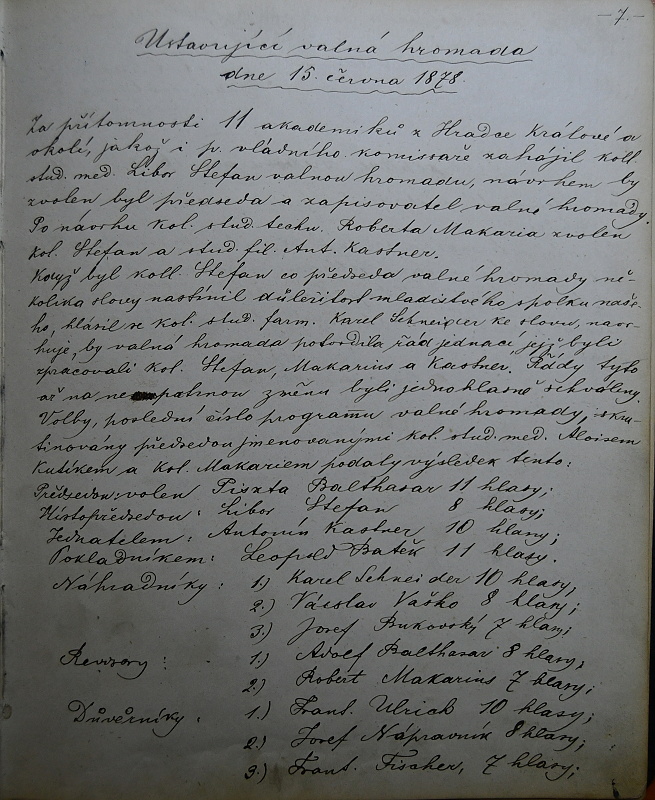 — 7. —
Ustavující valná hromada
dne 15. června 1878.
Za přítomnosti 11 akademiků z Hradce Králové a
okolí, jakož i p. vládního komissaře zahájil koll.
stud. med. Libor Stefan valnou hromadu, návrhem by
zvolen byl předseda a zapisovatel valné hromady.
Po návrhu kol. stud. techn. Roberta Makaria zvolen
kol. Stefan a stud. fil. Ant. Kastner.
Když byl koll. Stefan co předseda valné hromady ně-
kolika slovy nastínil důležitost mladistvého spolku naše-
ho, hlásil se kol. stud. farm. Karel Schneider ke slovu, navr-
huje, by valná hromada potvrdila řád jednací jejž byli
zpracovali kol. Stefan, Makarius a Kastner. Řády tyto
až na nepatrnou změnu byli jednohlasně schváleny.
Volby, poslední číslo programu valné hromady, skru-
tinovány předsedou jmenovanými kol. stud. med. Aloisem
Kutíkem a kol. Makariem podaly výsledek tento:
Předsedou: volen Piszta Balthasar 11 hlasy;
Místopředsedou: Libor Stefan 8 hlasy;
Jednatelem: Antonín Kastner 10 hlasy;
Pokladníkem: Leopold Batěk 11 hlasy.
Náhradníky: 1.) Karel Schneider 10 hlasy,
2.) Václav Vaško 8 hlasy;
3.) Josef Bukovský 7 hlasy;
Revisory: 1.) Adolf Balthasar 8 hlasy,
2.) Robert Makarius 7 hlasy;
Důvěrníky: 1.) Frant. Ulrich 10 hlasy;
2.) Josef Nápravník 8 hlasy;
3.) Frant. Fischer, 7 hlasy;